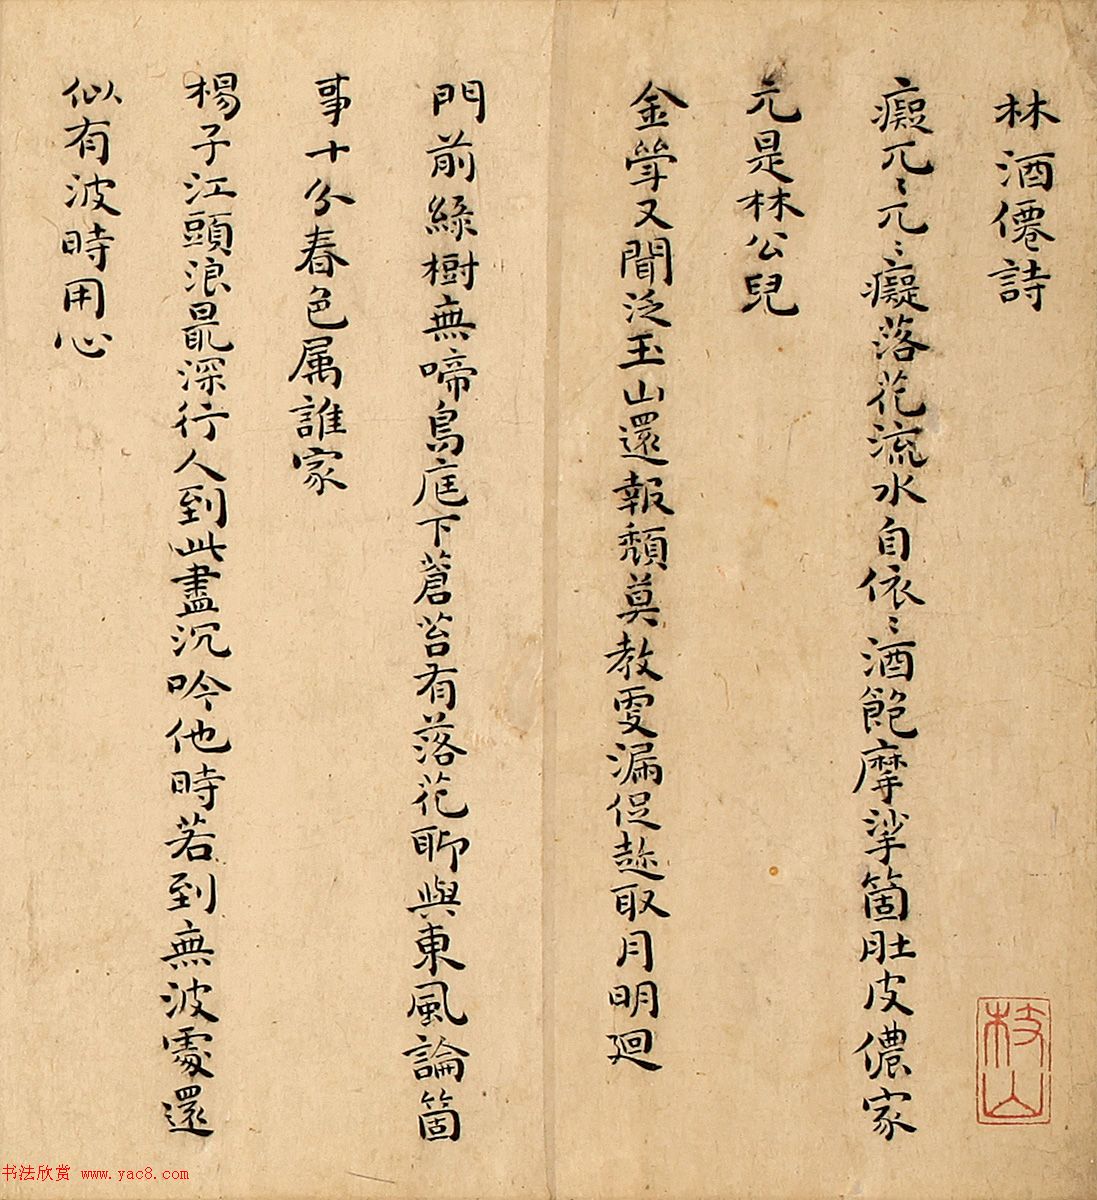 林酒僊詩
癡兀〻兀〻癡落花流水自依〻酒飽摩挲箇肚皮儂家
元是林公兒
金斝又聞泛玉山還報頹莫教更漏促趂取月明廻
門前綠樹無啼鳥庭下蒼苔有落花聊與東風論箇
事十分春色属誰家
楊子江頭浪最深行人到此盡沉吟他時若到無波處還
似有波時用心
枝山
书法欣赏 www.yac8.com